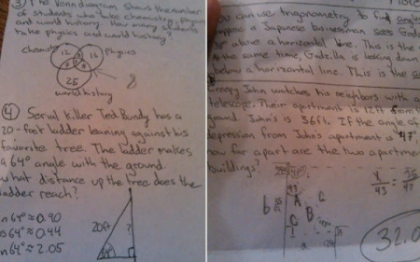 ③ The Venn diagram shows the number
of students who take chemistry, physics
and world history. How many students
take physics and world history?
chemistry
12
16
Physics
25
8
world history
④ Serial Killer Ted Bundy has a
20-foot ladder leaning against his
favorite tree. The ladder makes
a 64° angle with the ground.
what distance up the tree does the
ladder reach?
in 64° ≈ 0.90
os 64° ≈ 0.44
an 64° ≈ 2.05
20ft
?
64°
ou can use trigonometry to find
a Japanese businessman sees Godz
above a horizontal line. This is the
the same time, Godzilla is looking down
below a horizontal line. This is the
Creepy John watches his neighbors with a
telescope. Their apartment is 12ft from
ground. John's is 36ft. If the angle of
depression from John's apartment is 47,
how far apart are the two apartment
buildings?
A
C
B
b
32.0